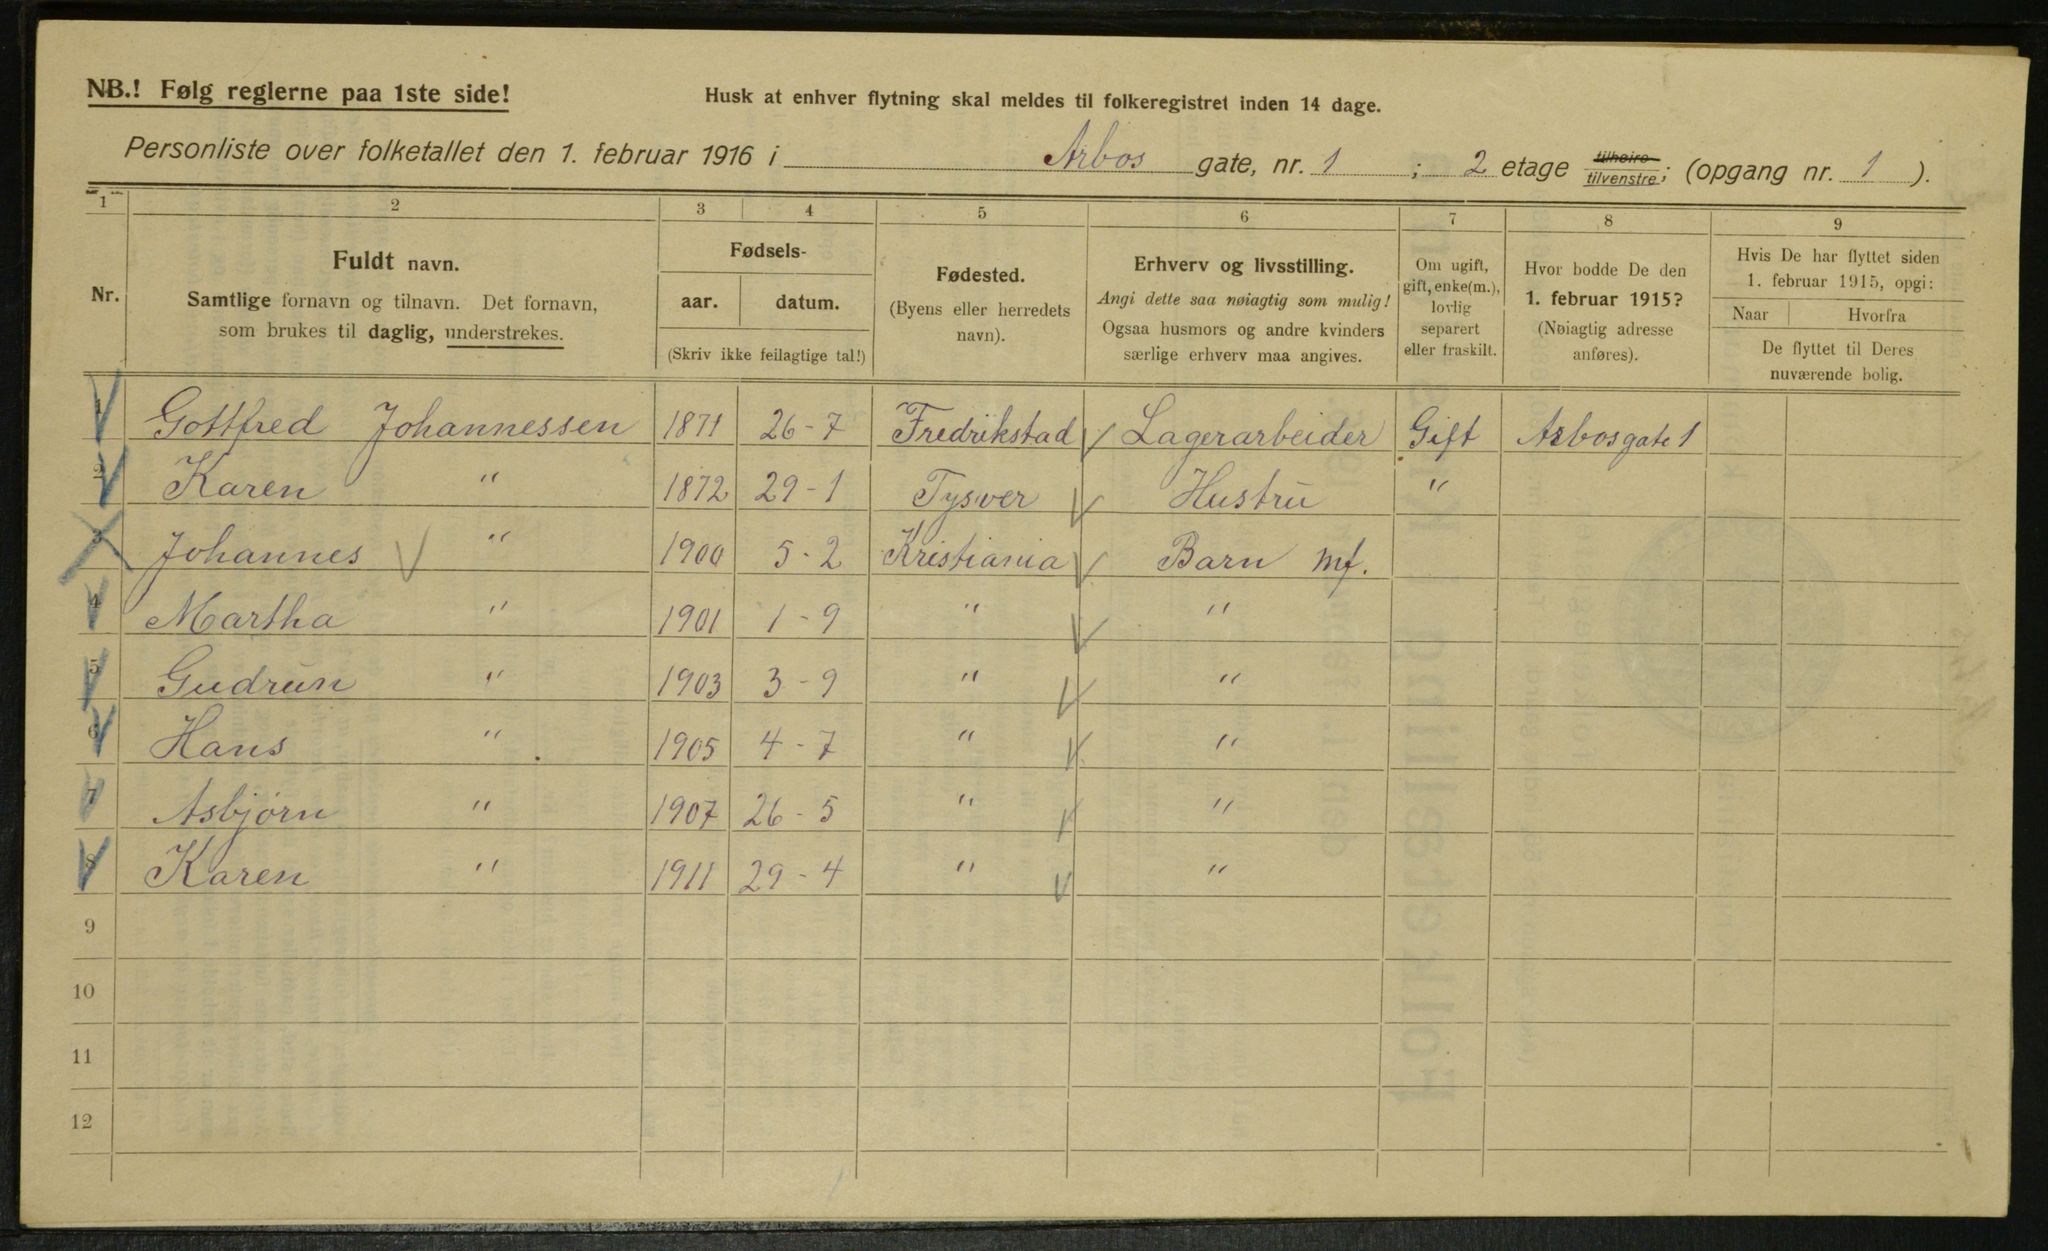 NB.! Følg reglerne paa 1ste side!
Husk at enhver flytning skal meldes til folkeregistret inden 14 dage.
Personliste over folketallet den 1. februar 1916 i Arbos gate, nr. 1 ; 2 etage tilhøire tilvenstre; (opgang nr. 1 ).
1 2 3 4 5 6 7 8 9
Nr.
Fuldt navn.
Samtlige fornavn og tilnavn. Det fornavn,
som brukes til daglig, understrekes.
Fødsels-
aar. datum.
(Skriv ikke feilagtige tal!)
Fødested.
(Byens eller herredets
navn).
Erhverv og livsstilling.
Angi dette saa nøiagtig som mulig!
Ogsaa husmors og andre kvinders
særlige erhverv maa angives.
Om ugift,
gift, enke(m.),
lovlig
separert
eller fraskilt.
Hvor bodde De den
1. februar 1915?
(Nøiagtig adresse
anføres).
Hvis De har flyttet siden
1. februar 1915, opgi:
Naar Hvorfra
De flyttet til Deres
nuværende bolig.
1 Gottfred Johannessen 1871 26-7 Fredrikstad Lagerarbeider Gift Arbosgate 1
2 Karen " 1872 29-1 Tysver Hustru "
3 Johannes " 1900 5-2 Kristiania Barn mf.
4 Martha " 1901 1-9 " "
5 Gudrun " 1903 3-9 " "
6 Hans " 1905 4-7 " "
7 Asbjørn " 1907 26-5 " "
8 Karen " 1911 29-4 " "
9
10
11
12